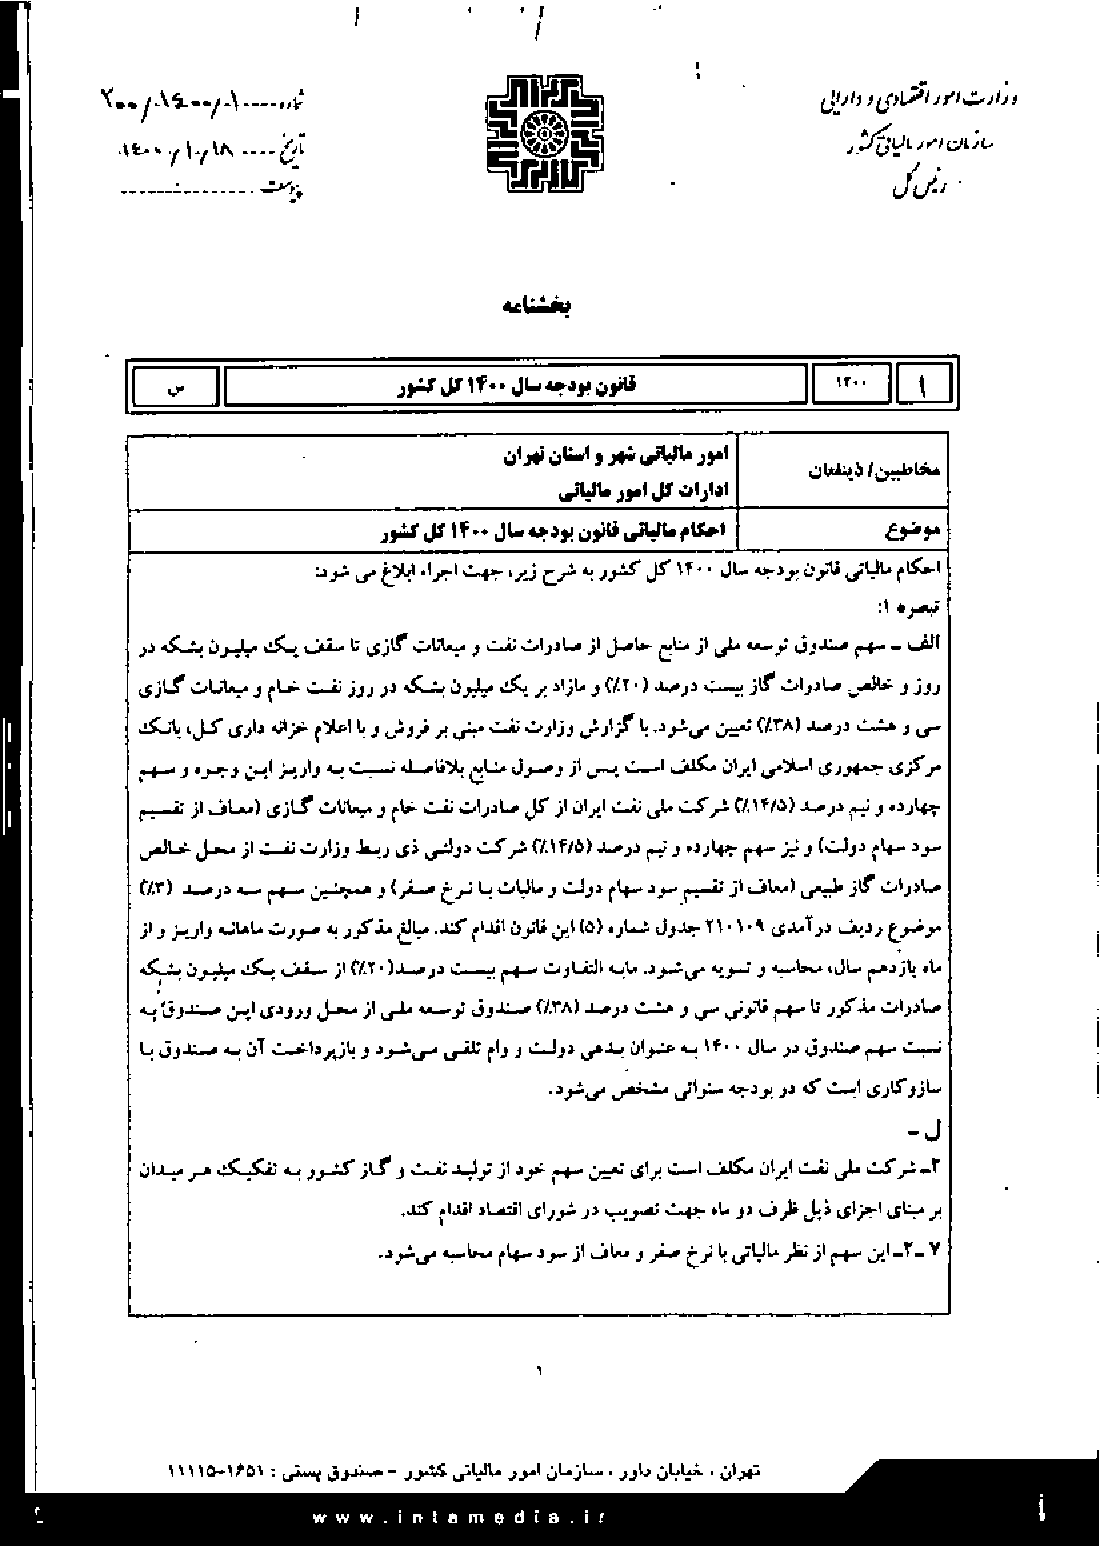 وزارت امور اقتصادی و دارایی
سازمان امور مالیاتی کشور
رئیس کل
شماره ۲۰۰/۱۴۰۰/۰۱
تاریخ ۱۴۰۰/۱۰/۱۸
پیوست
بخشنامه
۱ ۱۴۰۰ قانون بودجه سال ۱۴۰۰ کل کشور ص
مخاطبین/ ذینفعان
امور مالیاتی شهر و استان تهران
ادارات کل امور مالیاتی
موضوع احکام مالیاتی قانون بودجه سال ۱۴۰۰ کل کشور
احکام مالیاتی قانون بودجه سال ۱۴۰۰ کل کشور به شرح زیر، جهت اجراء ابلاغ می شود:
تبصره ۱:
الف - سهم صندوق توسعه ملی از منابع حاصل از صادرات نفت و میعانات گازی تا سقف یک میلیون بشکه در
روز و خالص صادرات گاز بیست درصد (۲۰٪) و مازاد بر یک میلیون بشکه در روز نفت خام و میعانات گازی
سی و هشت درصد (۳۸٪) تعیین می‌شود. با گزارش وزارت نفت مبنی بر فروش و با اعلام خزانه داری کل، بانک
مرکزی جمهوری اسلامی ایران مکلف است پس از وصول منابع بلافاصله نسبت به واریز این وجوه و سهم
چهارده و نیم درصد (۱۴/۵٪) شرکت ملی نفت ایران از کل صادرات نفت خام و میعانات گازی (معاف از تقسیم
سود سهام دولت) و نیز سهم چهارده و نیم درصد (۱۴/۵٪) شرکت دولتی ذی ربط وزارت نفت از محل خالص
صادرات گاز طبیعی (معاف از تقسیم سود سهام دولت و مالیات با نرخ صفر) و همچنین سهم سه درصد (۳٪)
موضوع ردیف درآمدی ۲۱۰۱۰۹ جدول شماره (۵) این قانون اقدام کند. مبالغ مذکور به صورت ماهانه واریز و از
ماه یازدهم سال، محاسبه و تسویه می‌شود. مابه التفاوت سهم بیست درصد(۲۰٪) از سقف یک میلیون بشکه
صادرات مذکور تا سهم قانونی سی و هشت درصد (۳۸٪) صندوق توسعه ملی از محل ورودی این صندوق به
نسبت سهم صندوق در سال ۱۴۰۰ به عنوان بدهی دولت و وام تلقی می‌شود و بازپرداخت آن به صندوق با
سازوکاری است که در بودجه سنواتی مشخص می‌شود.
ل -
۲- شرکت ملی نفت ایران مکلف است برای تعیین سهم خود از تولید نفت و گاز کشور به تفکیک هر میدان
بر مبنای اجزای ذیل ظرف دو ماه جهت تصویب در شورای اقتصاد اقدام کند.
۷ -۲- این سهم از نظر مالیاتی با نرخ صفر و معاف از سود سهام محاسبه می‌شود.
۱
تهران ، خیابان داور ، سازمان امور مالیاتی کشور - صندوق پستی : ۱۶۵۱-۱۱۱۱۵
www.intamedia.ir